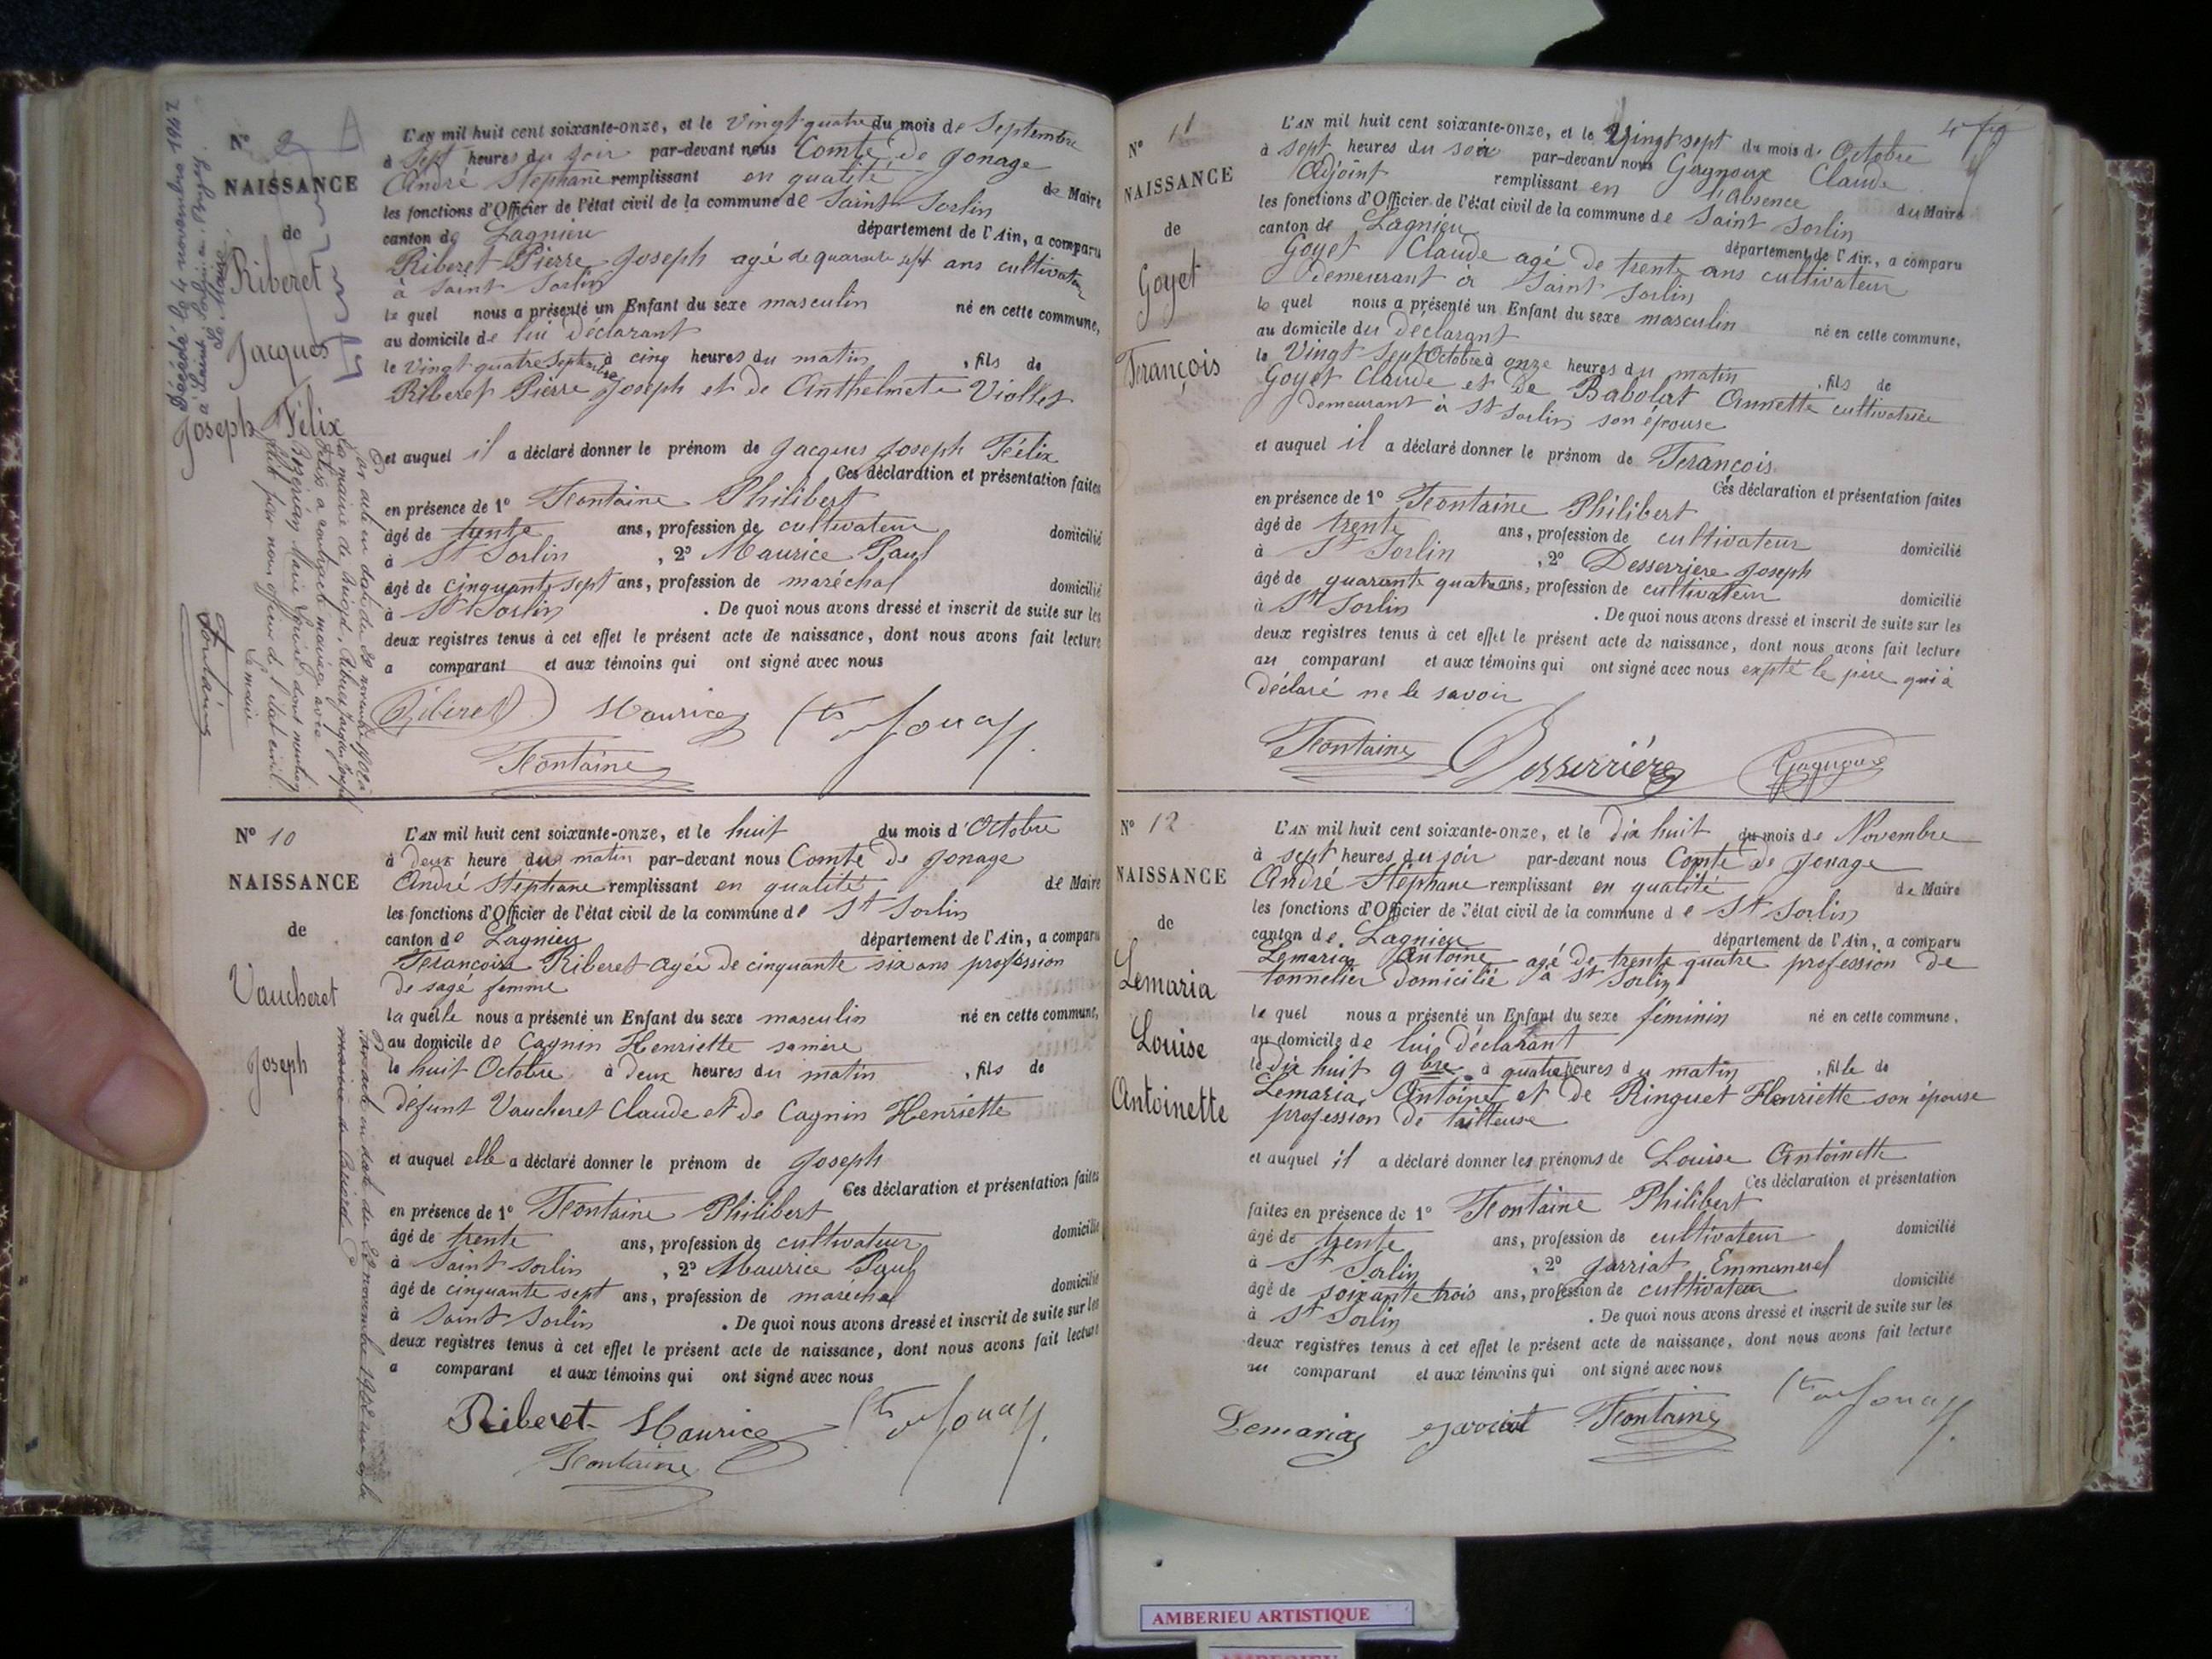 N° 9
NAISSANCE
de
Riberet
Jacques
Joseph Félix
Décédé le 4 novembre 1942
à Saint Sorlin en Bugey.
Le Maire
Par acte en date du 22 novembre 1902 à
la mairie de Briord, Riberet Jacques Joseph
Félix a contracté mariage avec
Marie dont mention
faite par nous officier de l'état civil
Le maire
Fontaine
L'AN mil huit cent soixante-onze, et le Vingt quatre du mois de Septembre
à Sept heures du soir par-devant nous Comte de Jonage
André Stéphane remplissant en qualité de Maire
les fonctions d'Officier de l'état civil de la commune de Saint Sorlin
canton de Lagnieu département de l'Ain, a comparu
Riberet Pierre Joseph agé de quarante sept ans cultivateur
à Saint Sorlin
le quel nous a présenté un Enfant du sexe masculin né en cette commune,
au domicile de lui déclarant
le Vingt quatre Septembre à cinq heures du matin, fils de
Riberet Pierre Joseph et de Anthelmete Viollet
et auquel il a déclaré donner le prénom de Jacques Joseph Félix
Ces déclaration et présentation faites
en présence de 1° Fontaine Philibert
âgé de trente ans, profession de cultivateur domicilié
à St Sorlin, 2° Maurice Paul
âgé de cinquante sept ans, profession de maréchal domicilié
à St Sorlin. De quoi nous avons dressé et inscrit de suite sur les
deux registres tenus à cet effet le présent acte de naissance, dont nous avons fait lecture
a comparant et aux témoins qui ont signé avec nous
Riberet Maurice Cte de Jonage
Fontaine
N° 10
NAISSANCE
de
Vaucheret
Joseph
Par acte en date du 22 novembre 1902 à la
mairie de Briord
L'AN mil huit cent soixante-onze, et le huit du mois d'Octobre
à deux heure du matin par-devant nous Comte de Jonage
André Stéphane remplissant en qualité de Maire
les fonctions d'Officier de l'état civil de la commune de St Sorlin
canton de Lagnieu département de l'Ain, a comparu
Françoise Riberet agée de cinquante six ans profession
de sage femme
la quelle nous a présenté un Enfant du sexe masculin né en cette commune,
au domicile de Cagnin Henriette sa mère
le huit Octobre à deux heures du matin, fils de
défunt Vaucheret Claude et de Cagnin Henriette
et auquel elle a déclaré donner le prénom de Joseph
Ces déclaration et présentation faites
en présence de 1° Fontaine Philibert
âgé de trente ans, profession de cultivateur domicilié
à Saint Sorlin, 2° Maurice Paul
âgé de cinquante sept ans, profession de maréchal domicilié
à Saint Sorlin. De quoi nous avons dressé et inscrit de suite sur les
deux registres tenus à cet effet le présent acte de naissance, dont nous avons fait lecture
a comparant et aux témoins qui ont signé avec nous
Riberet Maurice Cte de Jonage
Fontaine
N° 11
NAISSANCE
de
Goyet
François
L'AN mil huit cent soixante-onze, et le Vingt sept du mois d'Octobre
à sept heures du soir par-devant nous Gagnoux Claude
Adjoint remplissant en l'Absence du Maire
les fonctions d'Officier de l'état civil de la commune de Saint Sorlin
canton de Lagnieu département de l'Ain, a comparu
Goyet Claude agé de trente ans cultivateur
demeurant à Saint Sorlin
le quel nous a présenté un Enfant du sexe masculin né en cette commune,
au domicile du déclarant
le Vingt Sept Octobre à onze heures du matin, fils de
Goyet Claude et de Babolat Annette cultivatrice
demeurant à St Sorlin son épouse
et auquel il a déclaré donner le prénom de François
Ces déclaration et présentation faites
en présence de 1° Fontaine Philibert
âgé de trente ans, profession de cultivateur domicilié
à St Sorlin, 2° Desserriere Joseph
âgé de quarante quatre ans, profession de cultivateur domicilié
à St Sorlin. De quoi nous avons dressé et inscrit de suite sur les
deux registres tenus à cet effet le présent acte de naissance, dont nous avons fait lecture
au comparant et aux témoins qui ont signé avec nous expté le père qui à
déclaré ne le savoir
Fontaine Desserrière Gagnoux
N° 12
NAISSANCE
de
Lemaria
Louise
Antoinette
L'AN mil huit cent soixante-onze, et le dix huit du mois de Novembre
à sept heures du soir par-devant nous Comte de Jonage
André Stéphane remplissant en qualité de Maire
les fonctions d'Officier de l'état civil de la commune de St Sorlin
canton de Lagnieu département de l'Ain, a comparu
Lemaria Antoine agé de trente quatre profession de
tonnelier domicilié à St Sorlin
le quel nous a présenté un Enfant du sexe féminin né en cette commune,
au domicile de lui déclarant
le dix huit 9bre à quatre heures du matin, fille de
Lemaria Antoine et de Ringuet Henriette son épouse
profession de tailleuse
et auquel il a déclaré donner les prénoms de Louise Antoinette
Ces déclaration et présentation
faites en présence de 1° Fontaine Philibert
âgé de trente ans, profession de cultivateur domicilié
à St Sorlin, 2° Garriat Emmanuel
âgé de soixante trois ans, profession de cultivateur domicilié
à St Sorlin. De quoi nous avons dressé et inscrit de suite sur les
deux registres tenus à cet effet le présent acte de naissance, dont nous avons fait lecture
au comparant et aux témoins qui ont signé avec nous
Lemaria Garriat Fontaine Cte de Jonage
AMBERIEU ARTISTIQUE